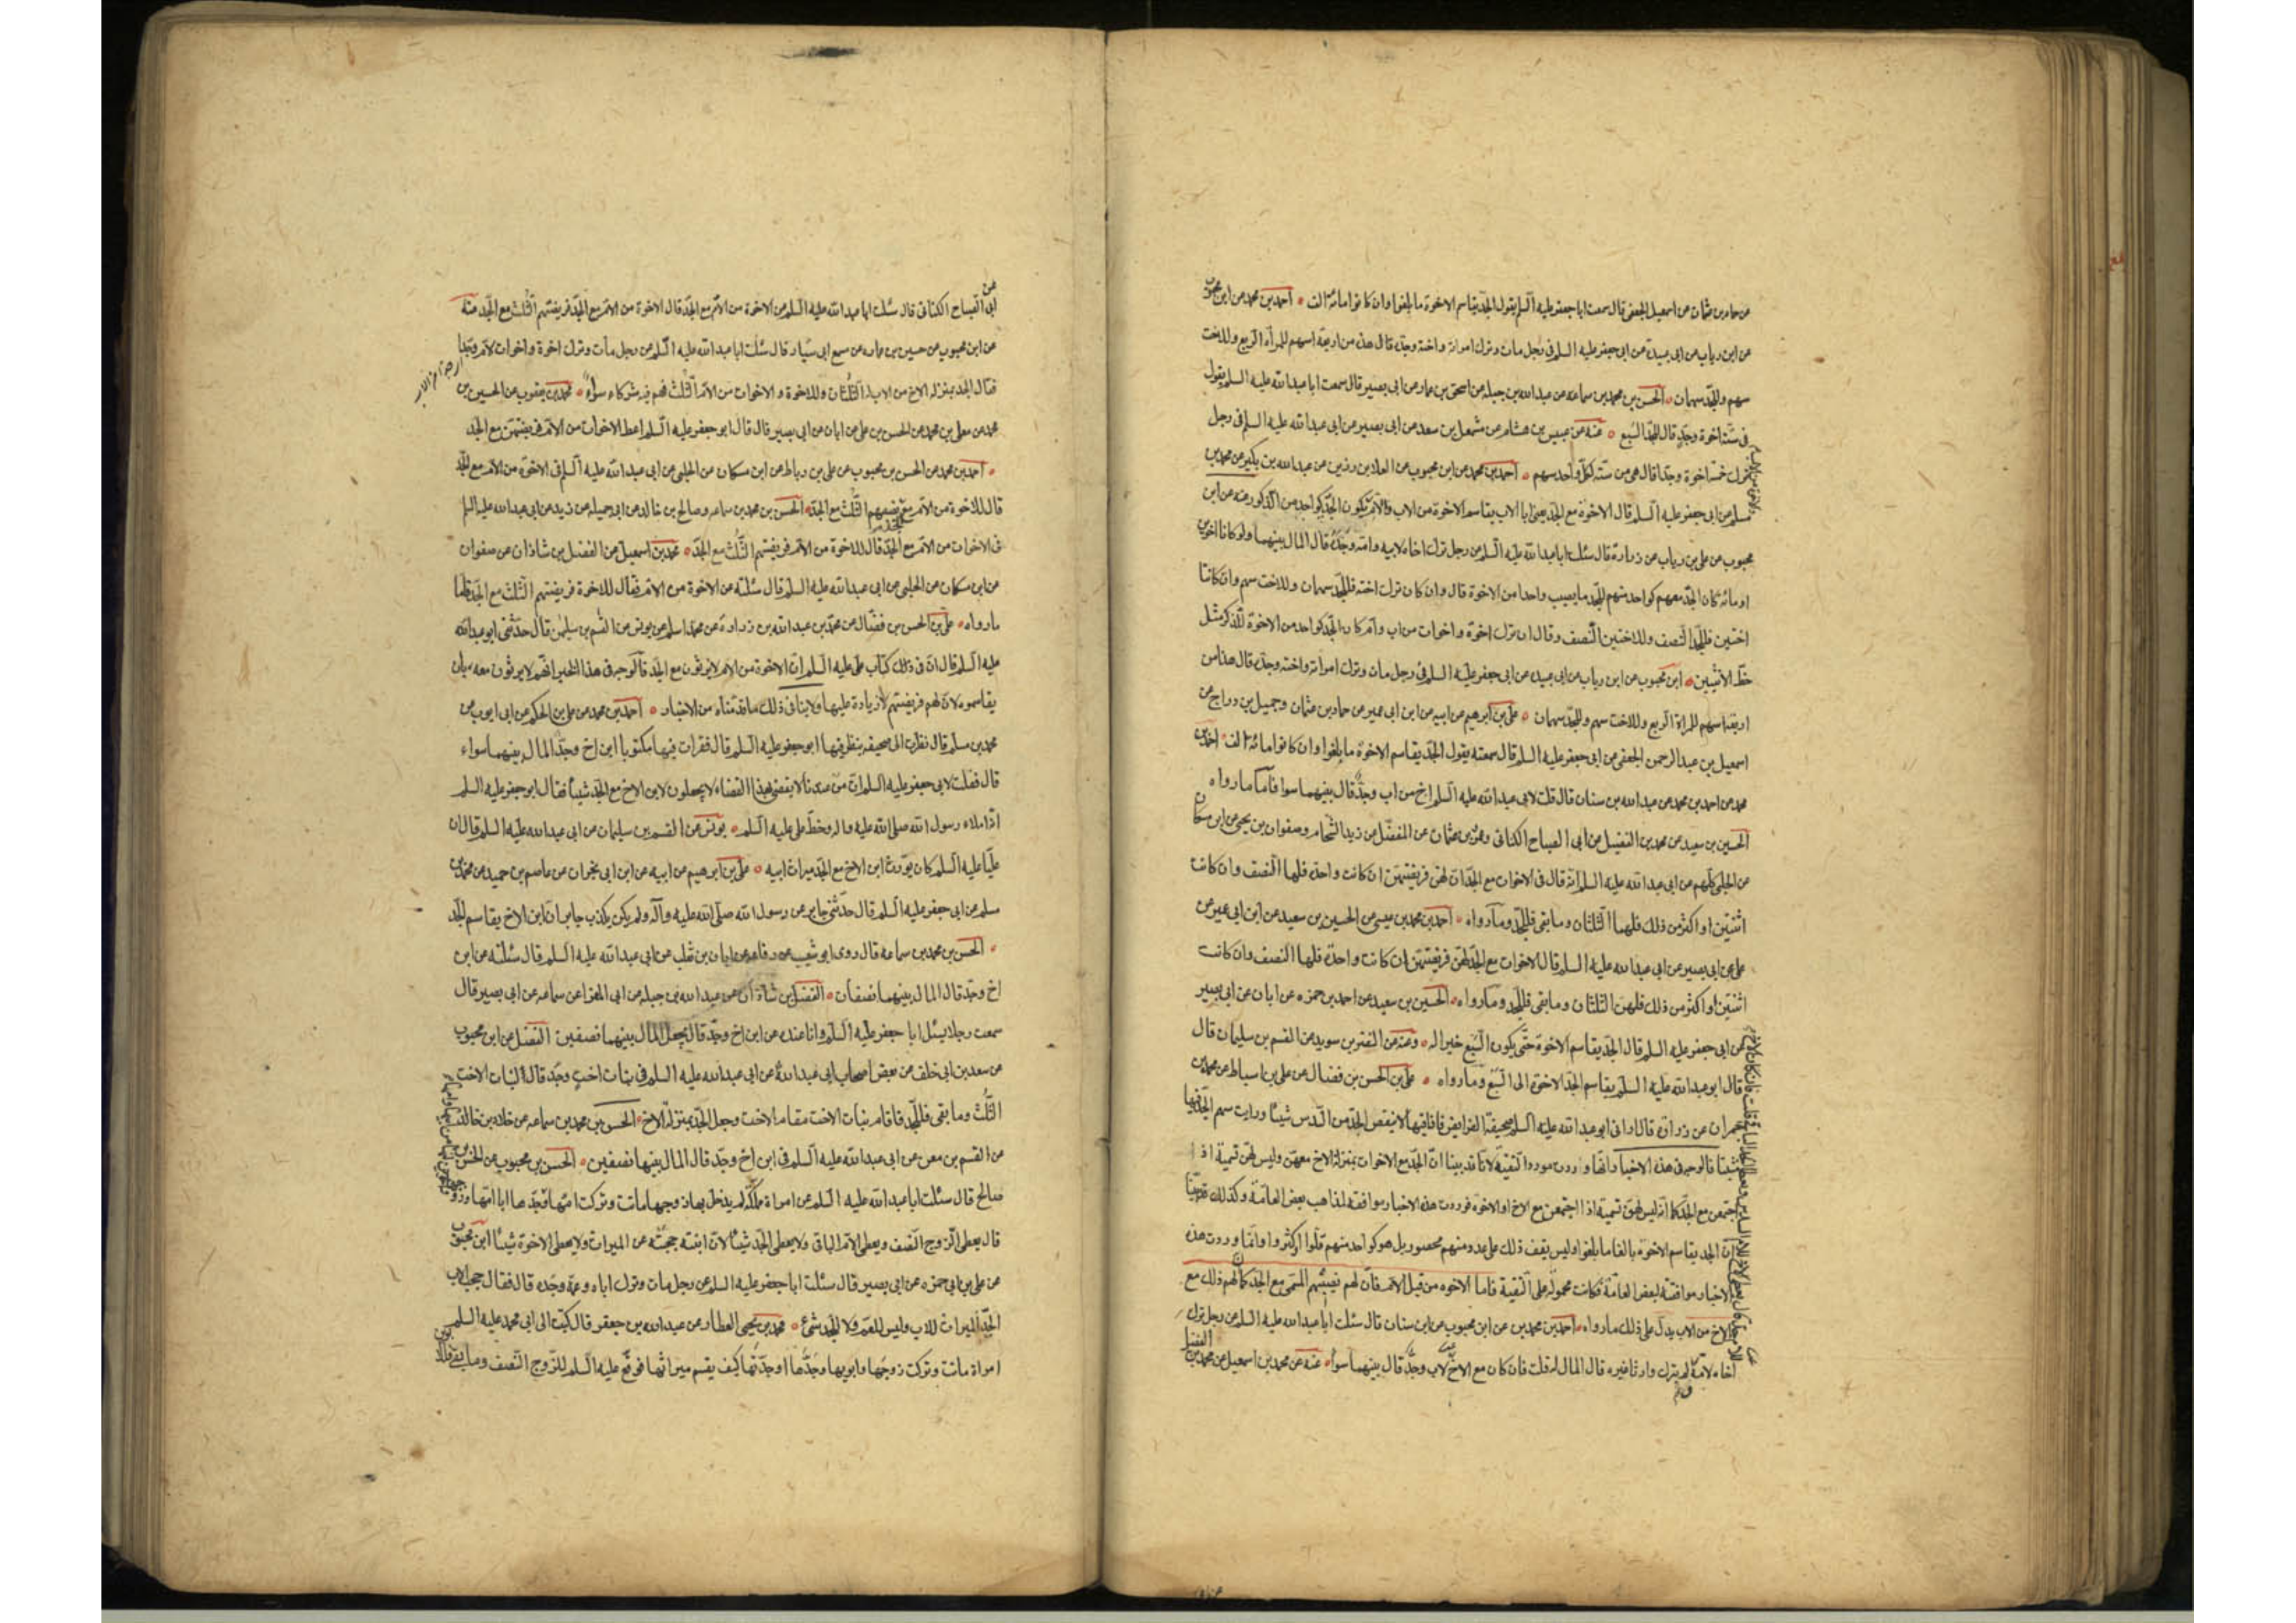 عن حماد بن عثمان عن اسمعيل الجعفى قال سمعت ابا جعفر عليه السلم يقول الجد يقاسم الاخوة ما بلغوا وان كانوا مائة الف احمد بن محمد عن ابن محبوب
عن ابن رياب عن ابى عبيدة عن ابى جعفر عليه السلم فى رجل مات وترك امراته واخته وجده قال هذه من اربعة اسهم للمراة الربع وللاخت
سهم وللجد سهمان الحسن بن محمد بن سماعه عن عبد الله بن جبله عن اسحق بن عمار عن ابى بصير قال سمعت ابا عبد الله عليه السلم يقول
فى ستة اخوة وجد قال للجد السبع عنه عن عبيس بن هشام عن مشمعل بن سعد عن ابى بصير عن ابى عبد الله عليه السلم فى رجل
ترك خمسة اخوة وجدا قال هى من ستة لكل واحد سهم احمد بن محمد عن ابن محبوب عن العلا بن رزين عن عبد الله بن بكير عن محمد بن
مسلم عن ابى جعفر عليه السلم قال الاخوة مع الجد يعنى ابا الاب يقاسم الاخوة من الاب والام يكون الجد كواحد من الذكور عنه عن ابن
محبوب عن على بن رياب عن زرارة قال سئلت ابا عبد الله عليه السلم عن رجل ترك اخاه لابيه وامه وجده قال المال بينهما ولو كانا اخوين
او مائة كان الجد معهم كواحد منهم للجد ما يصيب واحدا من الاخوة قال وان كان ترك اخته فللجد سهمان وللاخت سهم وان كانتا
اختين فللجد النصف وللاختين النصف وقال ان ترك اخوة واخوات من اب وام كان الجد كواحد من الاخوة للذكر مثل
حظ الانثيين ابن محبوب عن ابن رياب عن ابى عبيدة عن ابى جعفر عليه السلم فى رجل مات وترك امراته واخته وجده قال هذا من
اربعة اسهم للمراة الربع وللاخت سهم وللجد سهمان على بن ابرهيم عن ابيه عن ابن ابى عمير عن حماد بن عثمان وجميل بن دراج عن
اسمعيل بن عبد الرحمن الجعفى عن ابى جعفر عليه السلم قال سمعته يقول الجد يقاسم الاخوة ما بلغوا وان كانوا مائة الف احمد بن
محمد عن احمد بن محمد عن عبد الله بن سنان قال قلت لابى عبد الله عليه السلم اخ من اب وجد قال بينهما سوا فاما ما رواه
الحسين بن سعيد عن محمد بن الفضيل عن ابى الصباح الكنانى وعمرو بن عثمان عن المفضل عن زيد الشحام وصفوان بن يحيى عن ابن مسكان
عن الحلبى كلهم عن ابى عبد الله عليه السلم انه قال فى الاخوات مع الجد ان لهن فريضتهن ان كانت واحدة فلها النصف وان كانت
اثنتين او اكثر من ذلك فلهما الثلثان وما بقى فللجد وما رواه احمد بن محمد بن عيسى عن الحسين بن سعيد عن ابن ابى عمير عن
على عن ابى بصير عن ابى عبد الله عليه السلم قال الاخوات مع الجد لهن فريضتهن ان كانت واحدة فلها النصف وان كانت
اثنتين او اكثر من ذلك فلهن الثلثان وما بقى فللجد وما رواه الحسين بن سعيد عن احمد بن حمزه عن ابان عن ابى بصير
عن ابى جعفر عليه السلم قال الجد يقاسم الاخوة حتى يكون السبع خيرا له وعنه عن النضر بن سويد عن القسم بن سليمان قال
قال ابو عبد الله عليه السلم يقاسم الجد الاخوة الى السبع وما رواه على بن الحسن بن فضال عن على بن اسباط عن محمد بن
حمران عن زرارة قال ارانى ابو عبد الله عليه السلم صحيفة الفرايض فاذا فيها لا ينقص الجد من السدس شيئا ورايت سهم الجد فيها
مثبتا فالوجه فى هذه الاخبار انها وردت مورد التقية لانا قد بينا ان الجد مع الاخوات بمنزلة الاخ معهن وليس لهن تسمية اذا
اجتمعن مع الجد كما انه ليس لهن تسمية اذا اجتمعن مع الاخ او الاخوة فوردت هذه الاخبار موافقة لمذاهب بعض العامة وكذلك قد بينا
ان الجد يقاسم الاخوة بالغا ما بلغوا وليس يقف ذلك على عدد منهم محصور بل هو كواحد منهم قلوا ام كثروا وانما وردت هذه
الاخبار موافقة لبعض العامة فكانت محمولة على التقية فاما الاخوه من قبل الام فان لهم نصيبهم المسمى مع الجد كما ان لهم ذلك مع
الاخ من الاب يدل على ذلك ما رواه احمد بن محمد عن ابن محبوب عن ابن سنان قال سئلت ابا عبد الله عليه السلم عن رجل ترك
اخاه لامه لم يترك وارثا غيره قال المال له قلت فان كان مع الاخ للام جد قال بينهما سوا عنه عن محمد بن اسمعيل عن محمد بن الفضيل
عن ابى الصباح الكنانى قال سئلت ابا عبد الله عليه السلم عن الاخوة من الام مع الجد قال الاخوة من الام مع الجد فريضتهم الثلث مع الجد عنه
عن ابن محبوب عن حسين بن عماره عن مسمع ابى سيار قال سئلت ابا عبد الله عليه السلم عن رجل مات وترك اخوة واخوات لام وجدا
فقال الجد بمنزله الاخ من الاب له الثلثان وللاخوة والاخوات من الام الثلث فهم فيه شركاء سواء محمد بن يعقوب عن الحسين بن
محمد عن معلى بن محمد عن الحسن بن على عن ابان عن ابى بصير قال قال ابو جعفر عليه السلم اعط الاخوات من الام فريضتهن مع الجد
احمد بن محمد عن الحسن بن محبوب عن على بن رباط عن ابن مسكان عن الحلبى عن ابى عبد الله عليه السلم فى الاخوة من الام مع الجد
قال للاخوة من الام مع الجد نصيبهم الثلث مع الجد الحسن بن محمد بن سماعه وصالح بن خالد عن ابى جميله عن زيد عن ابى عبد الله عليه السلم
فى الاخوات من الام مع الجد قال للاخوة من الام فريضتهم الثلث مع الجد محمد بن اسمعيل عن الفضل بن شاذان عن صفوان
عن ابن مسكان عن الحلبى عن ابى عبد الله عليه السلم قال سئلته عن الاخوة من الام فقال للاخوة فريضتهم الثلث مع الجد فاما
ما رواه على بن الحسن بن فضال عن محمد بن عبد الله بن زرارة عن محمد اسلم عن يونس عن القسم بن سليمن قال حدثنى ابو عبد الله
عليه السلم قال ان فى ذلك كتاب على عليه السلم ان الاخوة من الام لا يرثون مع الجد فالوجه فى هذا الخبر انهم لا يرثون معه بان
يقاسموه لان لهم فريضتهم لا زيادة عليها ولا ينافى ذلك ما قدمناه من الاخبار احمد بن محمد عن على بن الحكم عن ابى ايوب عن
محمد بن مسلم قال نظرت الى صحيفه ينظر فيها ابو جعفر عليه السلم قال فقرات فيها مكتوبا ابن اخ وجد المال بينهما سواء
قال فقلت لابى جعفر عليه السلم ان من عندنا لا يقضى بهذا القضاء لا يجعلون لابن الاخ مع الجد شيئا فقال ابو جعفر عليه السلم
اما انه املاء رسول الله صلى الله عليه واله وخط على عليه السلم يونس عن القسم بن سليمان عن ابى عبد الله عليه السلم قال ان
عليا عليه السلم كان يورث ابن الاخ مع الجد ميراث ابيه على بن ابرهيم عن ابيه عن ابن ابى نجران عن عاصم بن حميد عن محمد بن
مسلم عن ابى جعفر عليه السلم قال حدثنى جابر عن رسول الله صلى الله عليه وآله ولم يكن يكذب جابر ان ابن الاخ يقاسم الجد
الحسن بن محمد بن سماعه قال روى ابو شعيب عن رفاعه عن ابان بن تغلب عن ابى عبد الله عليه السلم قال سئلته عن ابن
اخ وجد قال المال بينهما نصفان الفضل بن شاذان عن عبد الله بن جبله عن ابى المغرا عن سماعه عن ابى بصير قال
سمعت رجلا يسئل ابا جعفر عليه السلم وانا عنده عن ابن اخ وجد قال يجعل المال بينهما نصفين الفضل عن ابن محبوب
عن سعد بن ابى خلف عن بعض اصحاب ابى عبد الله عن ابى عبد الله عليه السلم فى بنات اخت وجد قال لبنات الاخت
الثلث وما بقى فللجد فاقام بنات الاخت مقام الاخت وجعل الجد بمنزلة الاخ الحسن بن محمد بن سماعه عن خلاد بن خالد
عن القسم بن معن عن ابى عبد الله عليه السلم فى ابن اخ وجد قال المال بينهما نصفين الحسن بن محبوب عن الحسن بن
صالح قال سئلت ابا عبد الله عليه السلم عن امراة مملكة لم يدخل بها زوجها ماتت وتركت امها وجدها ابا امها وزوجها
قال يعطى الزوج النصف ويعطى الام الباقى ولا يعطى الجد شيئا لان ابنته حجبته عن الميراث ولا يعطى الاخوة شيئا ابن محبوب
عن على بن ابى حمزه عن ابى بصير قال سئلت ابا جعفر عليه السلم عن رجل مات وترك اباه وعمه وجده قال فقال حجب الاب
الجد الميراث للاب وليس للعم ولا للجد شئ محمد بن يحيى العطار عن عبد الله بن جعفر قال كتبت الى ابى محمد عليه السلم
امراة ماتت وتركت زوجها وابويها وجدها او جدتها كيف يقسم ميراثها فوقع عليه السلم للزوج النصف وما بقى فللابوين